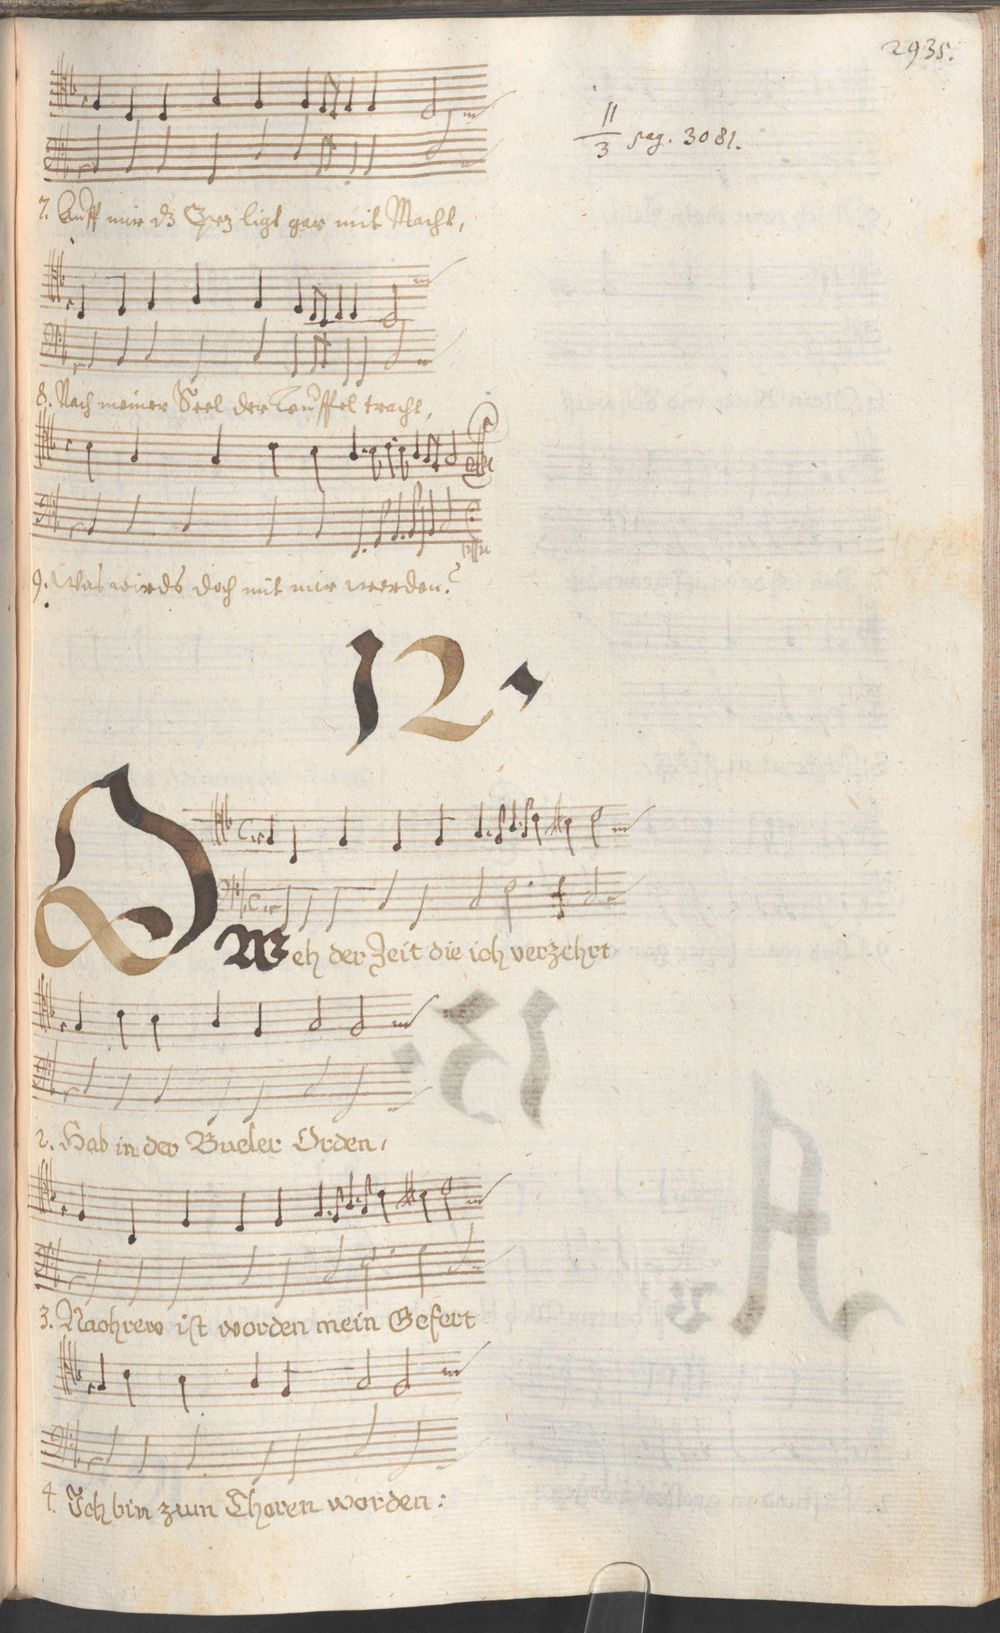 2935.
11/3 pag. 3081.
7. Auff mir dz Creüz ligt gar mit Macht,
8. Nach meiner Seel der Teuffel tracht,
9. Was wirds doch mit mir werden?
12.
O Weh der Zeit die ich verzehrt
2. Hab in der Bueler Orden,
3. Nachrew ist worden mein Gefert
4. Ich bin zum Thoren worden: